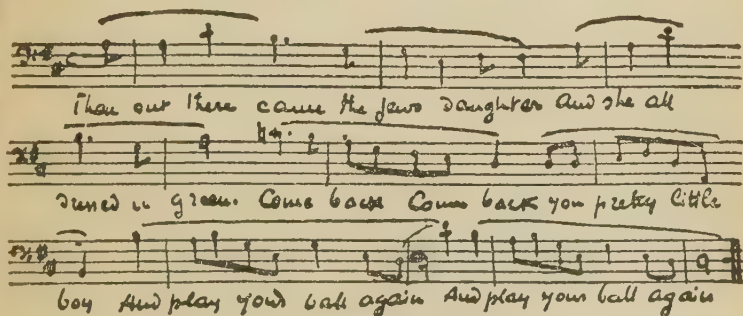 Then out there came the Jews Daughter and she all
dressed in green. Come back Come back you pretty little
boy And play your ball again And play your ball again